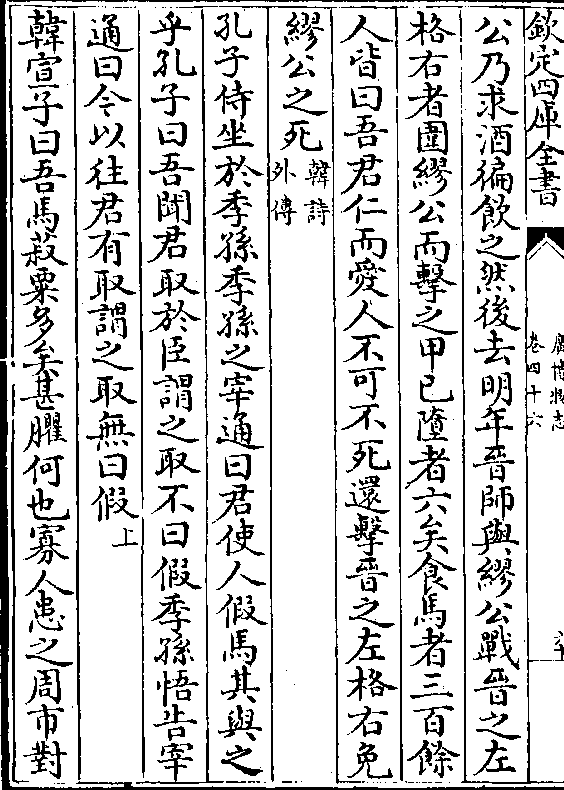 欽定四庫全書
廣博物志
卷四十六
公乃求酒徧飲之然後去明年晉師與繆公戰晉之左
格右者圍繆公而擊之甲已墮者六矣食馬者三百餘
人皆曰吾君仁而愛人不可不死還擊晉之左格右免
繆公之死
韓詩
外傳
孔子侍坐於季孫季孫之宰通曰君使人假馬其與之
乎孔子曰吾聞君取於臣謂之取不曰假季孫悟告宰
通曰今以往君有取謂之取無曰假上
韓宣子曰吾馬菽粟多矣甚臞何也寡人患之周市對